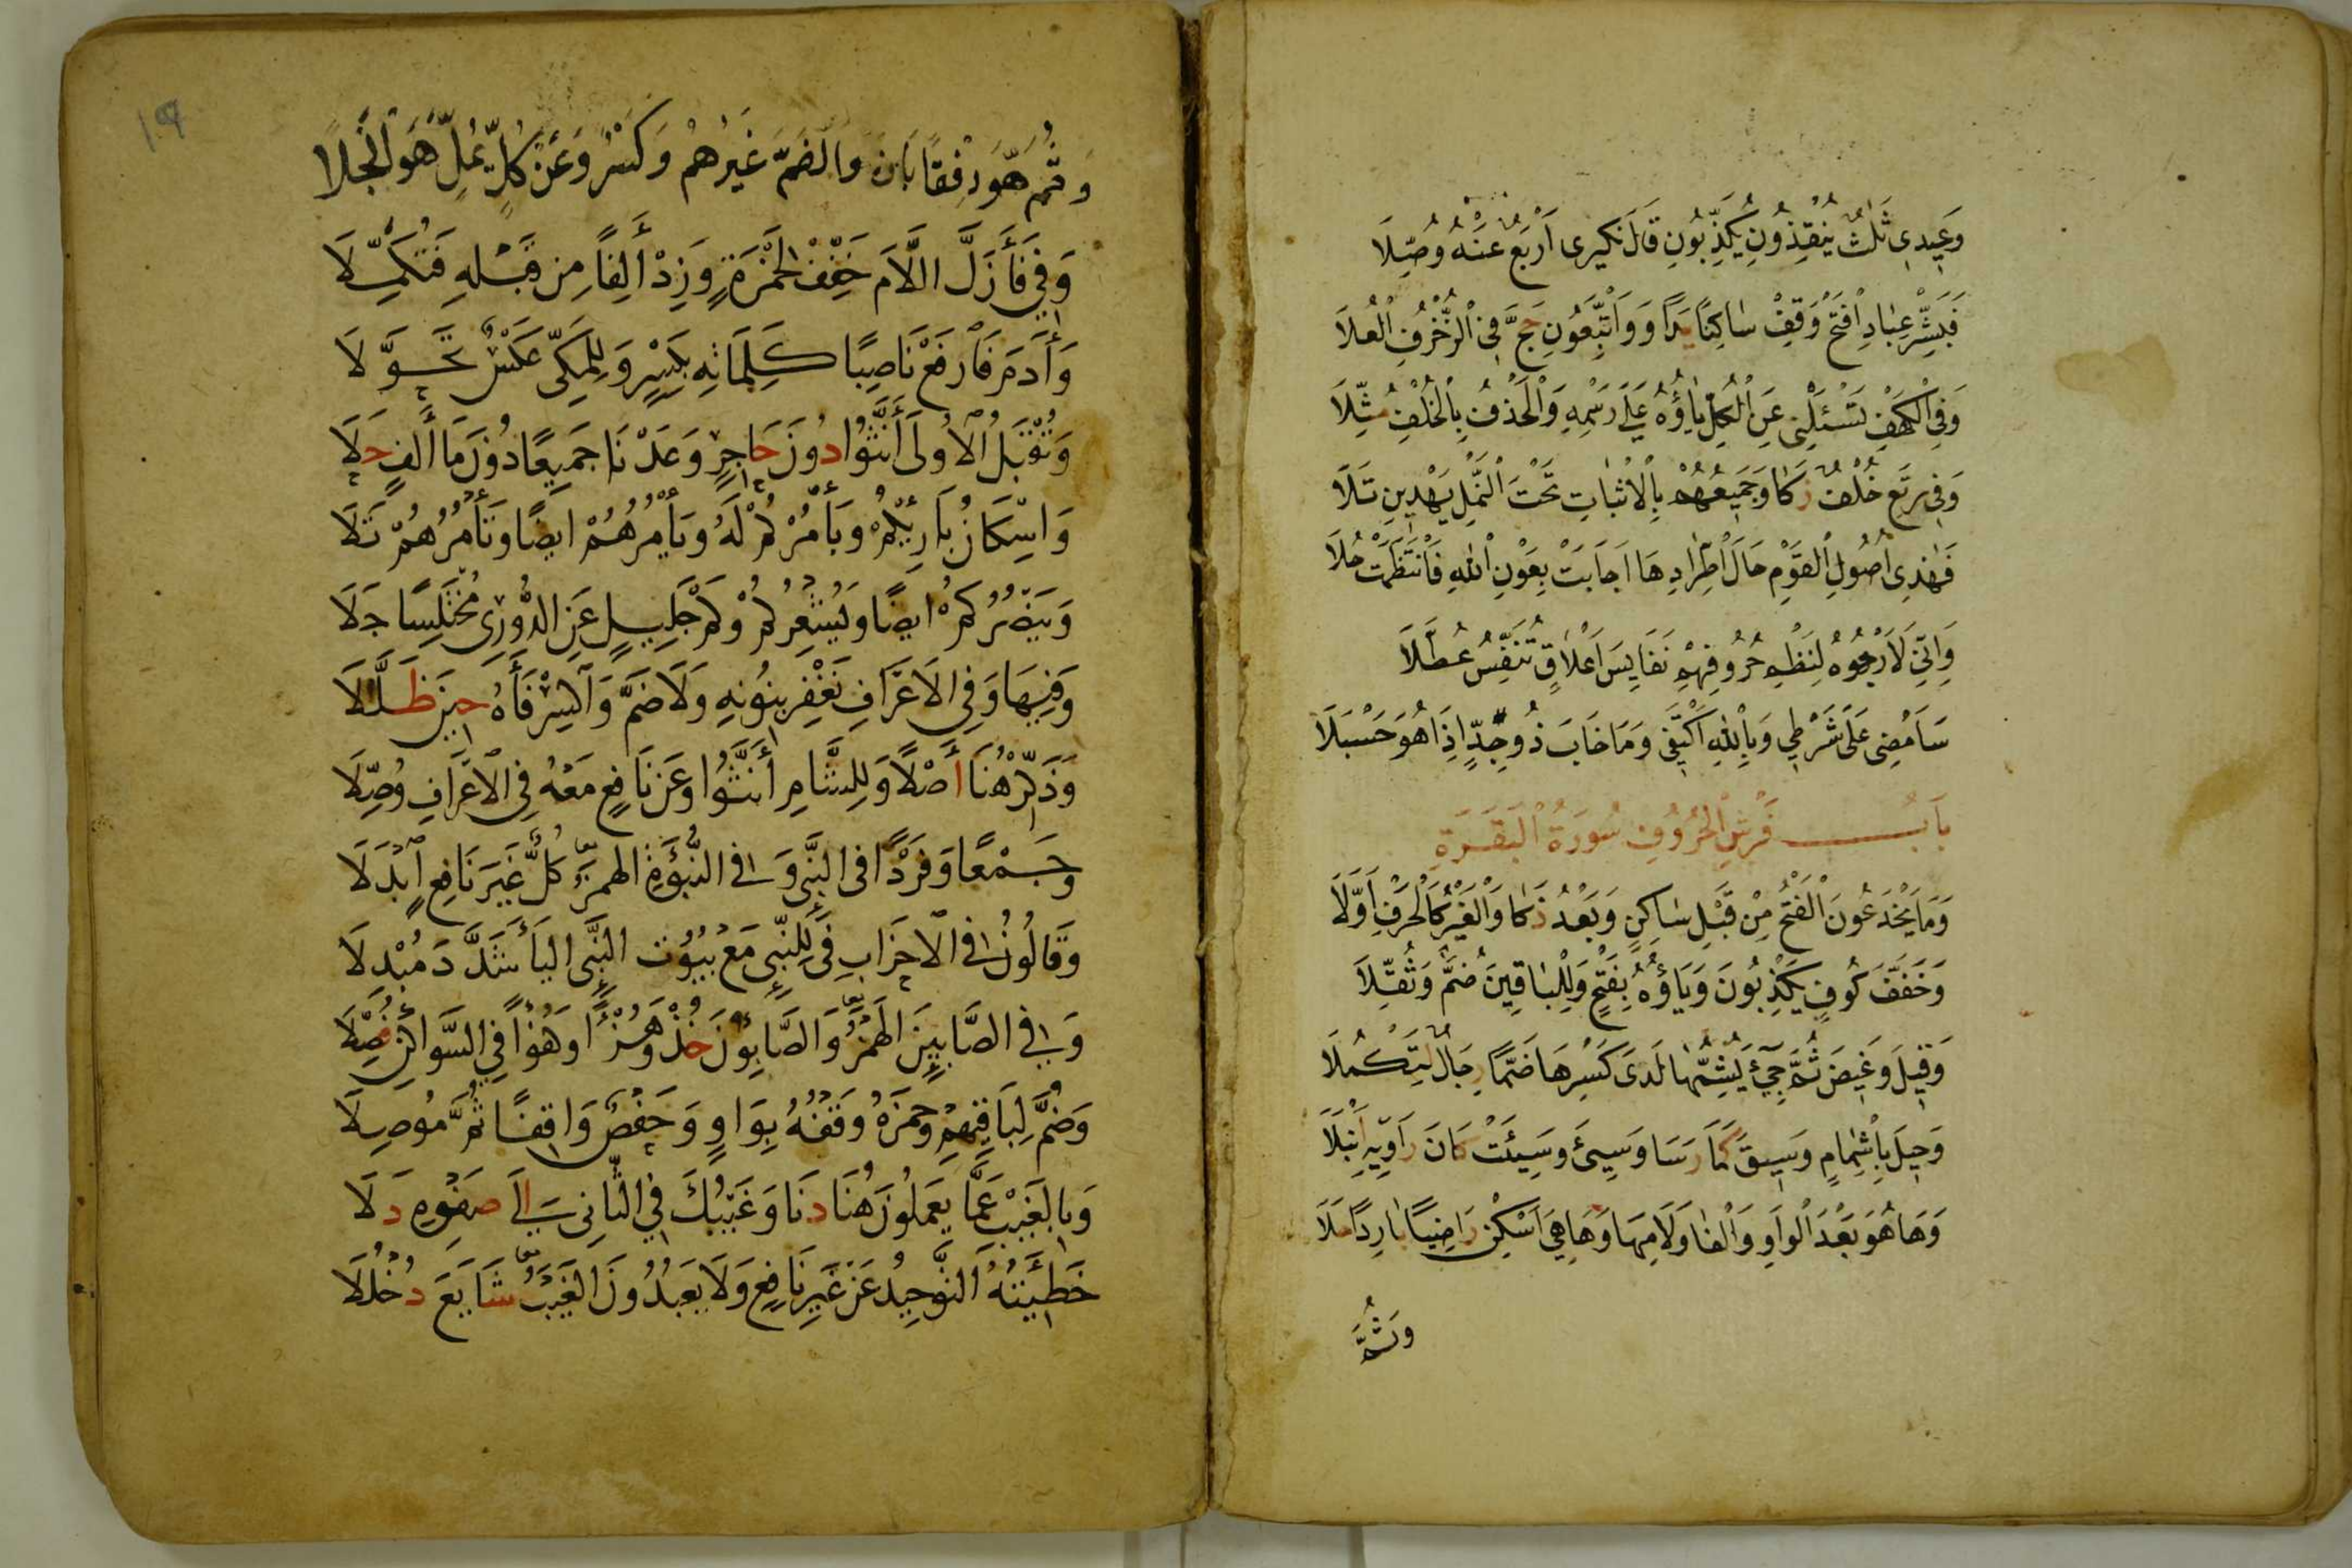 وَعِيدِى ثَلٰثٌ يُنْقِذُونِ يُكَذِّبُونِ قَالَ نَكِيرِى اَرْبَعٌ عَنْهُ وُصِّلَا
فَبَشِّرْ عِبَادِ افْتَحْ وَقِفْ سَاكِنًا يَدًا وَوَاتَّبِعُونِ حَجَّ فِى الزُّخْرُفِ الْعُلَا
وَفِى الْكَهْفِ تَسْئَلْنِى عَنِ الْكُلِّ يَاؤُهُ عَلَى رَسْمِهِ وَالْحَذْفُ بِالْخُلْفِ مُثِّلَا
وَفِى نَرْتَعِ خُلْفٌ زَكَا وَجَمِيعُهُمْ بِالْاِثْبَاتِ تَحْتَ النَّمْلِ يَهْدِيَنِى تَلَا
فَهٰذِى اُصُولُ الْقَوْمِ حَالَ اطِّرَادِهَا اَجَابَتْ بِعَوْنِ اللّٰهِ فَانْتَظَمَتْ حُلَا
وَاِنِّى لَاَرْجُوهُ لِنَظْمِ حُرُوفِهِمْ نَفَايِسَ اَعْلَاقٍ تُنَفِّسُ عُطَّلَا
سَاَمْضِى عَلَى شَرْطِى وَبِاللّٰهِ اَكْتَفِى وَمَا خَابَ ذُو جِدٍّ اِذَا هُوَ حَسْبَلَا
بَابُ فَرْشِ الْحُرُوفِ سُورَةُ الْبَقَرَةِ
وَمَا يَخْدَعُونَ الْفَتْحُ مِنْ قَبْلِ سَاكِنٍ وَبَعْدُ ذَكَا وَالْغَيْرُ كَالْحَرْفِ اَوَّلَا
وَخَفَّفَ كُوفٍ يَكْذِبُونَ وَيَاؤُهُ بِفَتْحٍ وَلِلْبَاقِينَ ضُمَّ وَثُقِّلَا
وَقِيلَ وَغِيضَ ثُمَّ جِىءَ يُشِمُّهَا لَدَى كَسْرِهَا ضَمًّا رِجَالٌ لِتَكْمُلَا
وَحِيلَ بِاِشْمَامٍ وَسِيقَ كَمَا رَسَا وَسِىءَ وَسِيئَتْ كَانَ رَاوِيهِ اَنْبَلَا
وَهَا هُوَ بَعْدَ الْوَاوِ وَالْفَا وَلَامِهَا وَهَا هِىَ اَسْكِنْ رَاضِيًا بَارِدًا حَلَا
وَثُمَّ
١٩
وَثُمَّ هُوَ رِفْقًا بَانَ وَالضَّمُّ غَيْرُهُمْ وَكَسْرٌ وَعَنْ كُلٍّ يُمِلَّ هُوَ انْجَلَا
وَفِى فَأَزَلَّ اللَّامَ خَفِّفْ لِحَمْزَةٍ وَزِدْ أَلِفًا مِنْ قَبْلِهِ فَتُكَمِّلَا
وَأَدَمَ فَارْفَعْ نَاصِبًا كَلِمَاتِهِ بِكَسْرٍ وَلِلْمَكِّى عَكْسٌ تَحَوَّلَا
وَتُقْبَلُ الْأُولَى أَنَّثُوا دُونَ حَاجِزٍ وَعَدْنَا جَمِيعًا دُونَ مَا أَلِفٍ حَلَا
وَاسْكَانُ بَارِئْكُمْ وَيَأْمُرْكُمْ لَهُ وَيَأْمُرُهُمْ ايضًا وَتَأْمُرُهُمْ تَلَا
وَيَنْصُرُكُمْ ايضًا وَيُشْعِرُكُمْ وَكَمْ جَلِيلٍ عَنِ الدُّورِى مُخْتَلِسًا جَلَا
وَفِيهَا وَفِى الْأَعْرَافِ نَغْفِر بِنُونِهِ وَلَا ضَمَّ وَاكْسِرْ فَأَهُ حِينَ ظَلَّلَا
وَذَكِّرْ هُنَا أَصْلًا وَلِلشَّامِ أَنَّثُوا وَعَنْ نَافِعٍ مَعْهُ فِى الْأَعْرَافِ وُصِّلَا
وَجَمْعًا وَفَرْدًا فى النَّبِى وَفى النُّبُوءَةِ الهمزَ كُلٌّ غَيْرَ نَافِعٍ ابْدَلَا
وَقَالُونُ فى الْأَحْزَابِ فِى لِلنَّبِىِّ مَعْ بُيُوت النَّبِى اليَأَ شَدَّدَ مُبْدِلَا
وَفى الصَّابِئِينَ الهَمْزُ وَالصَّابِئُونَ خُذْ وَهُزْءًا وَهُزْؤًا فِى السَّوَاكِنِ فُصِّلَا
وَضُمَّ لِبَاقِيهِمْ وَحَمْزَةُ وَقْفُهُ بِوَاوٍ وَحَفْصٌ وَاقِفًا ثُمَّ مُوصِلَا
وَبِالْغَيْبِ عَمَّا يَعْمَلُونَ هُنَا دَنَا وَغَيْبُكَ فِى الثَّانِى إِلَى صَفْوِهِ دَلَا
خَطِيئَتُهُ التَّوحِيدُ عَنْ غَيْرِ نَافِعٍ وَلَا يَعْبُدُونَ الغَيْبُ شَايَعَ دُخْلُلَا